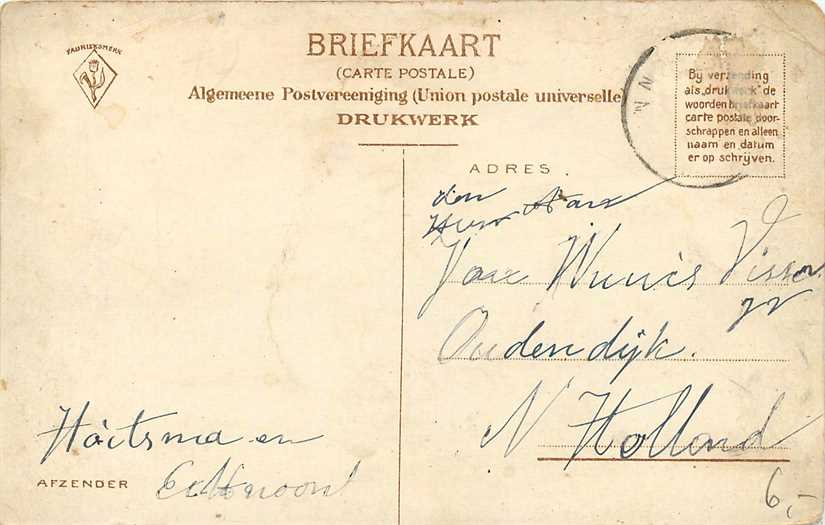 FABRIEKSMERK
BRIEFKAART
(CARTE POSTALE)
Algemeene Postvereeniging (Union postale universelle)
DRUKWERK
By verzending
als „drukwerk" de
woorden briefkaart
carte postale door-
schrappen en alleen
naam en datum
er op schrijven.
ADRES
den
Heer
Visser
Oudendijk.
N Holland
Hoitsma en
Echtgenoot
AFZENDER
6,-